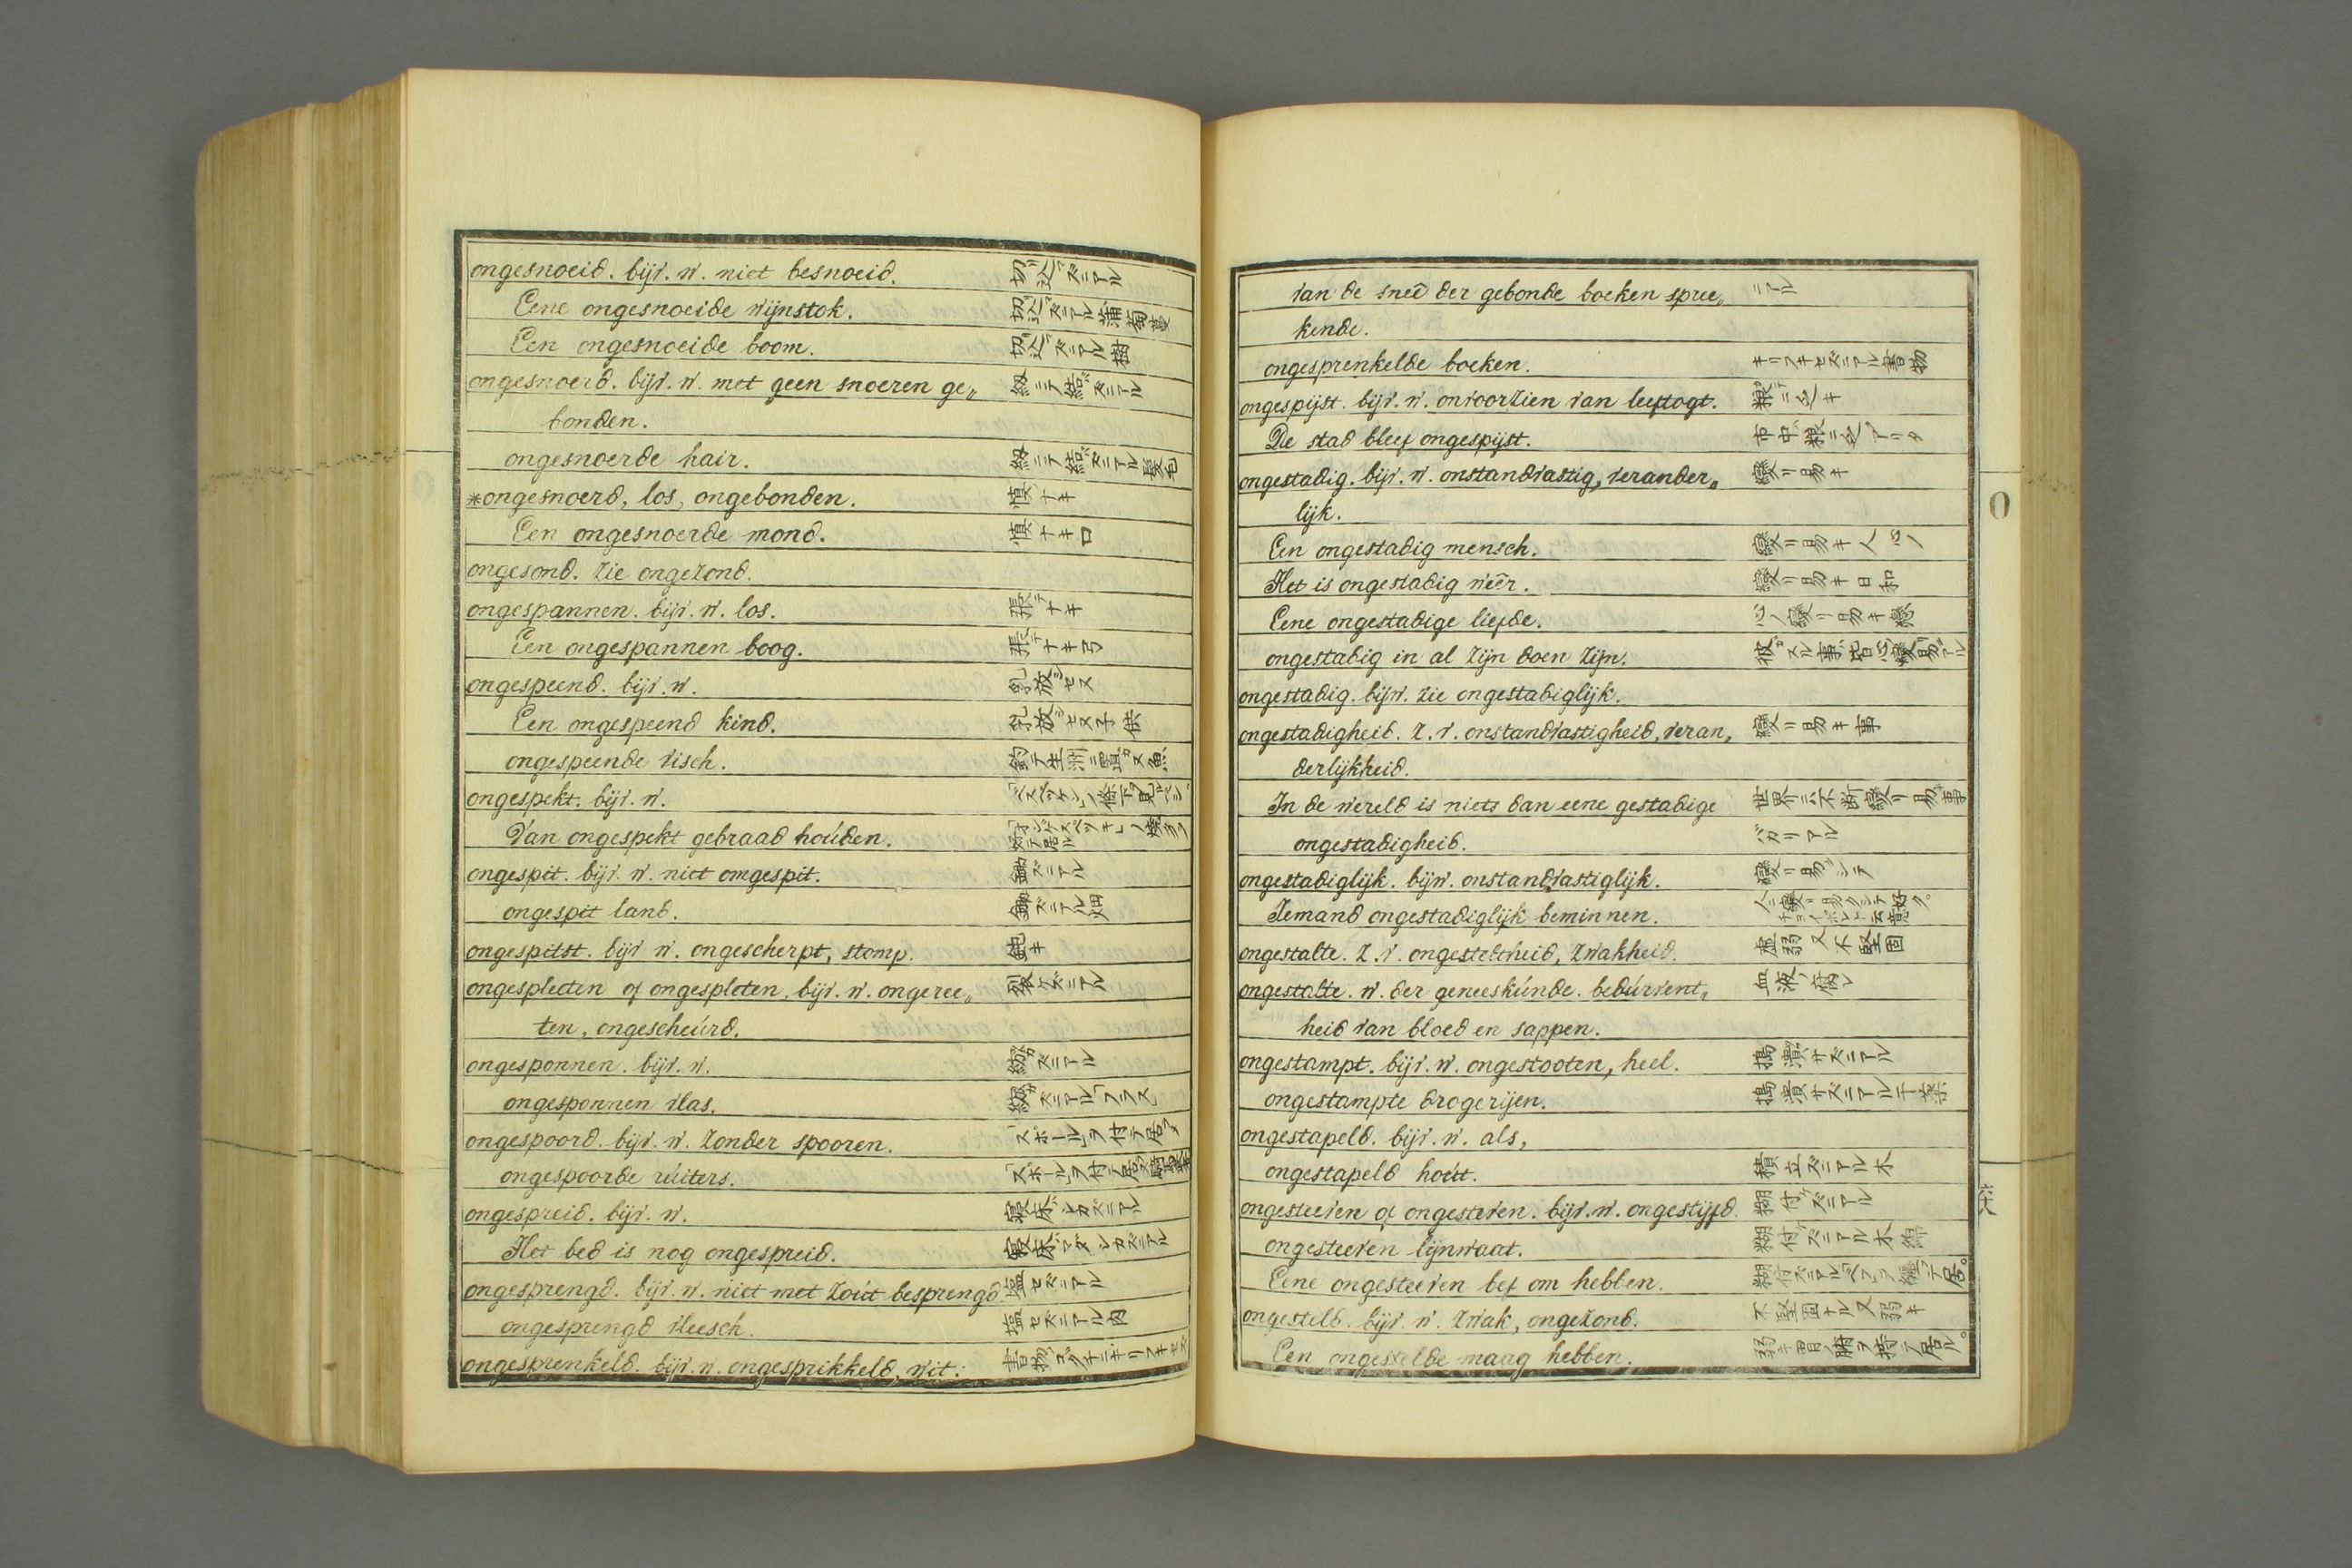 ongesnoeid. bijv. w. niet besnoeid. 切込ズニアル
Eene ongesnoeide wijnstok. 切込ズニアル葡萄蔓
Een ongesnoeide boom. 切込ズニアル樹
ongesnoerd. bijv. w. met geen snoeren ge„ 紐ニテ結ズニアル
bonden.
ongesnoerde hair. 紐ニテ結ズニアル髪毛
*ongesnoerd, los, ongebonden. 慎ナキ
Een ongesnoerde mond. 慎ナキ口
ongesond. zie ongezond.
ongespannen. bijv. w. los. 張テナキ
Een ongespannen boog. 張テナキ弓
ongespeend. bijv. w. 乳放シセヌ
Een ongespeend kind. 乳放シセヌ子供
ongespeende visch. 釣テ生洲ニ置ヌ魚
ongespekt. bijv. w.
Van ongespekt gebraad houden.
ongespit. bijv. w. niet omgespit. 鋤ズニアル
ongespit land. 鋤ズニアル畑
ongespitst. bijv w. ongescherpt, stomp. 鈍キ
ongespleeten of ongespleten. bijv. w. ongeree„ 裂ケズニアル
ten, ongescheurd.
ongesponnen. bijv. w. 紡ガズニアル
ongesponnen vlas. 紡ガズニアル「フラス」
ongespoord. bijv. w. zonder spooren. 「スポール」ヲ付テ居ヌ
ongespoorde ruiters.
ongespreid. bijv. w. 寝床シカズニアル
Het bed is nog ongespreid. 寝床マダシカズニアル
ongesprengd. bijv. w. niet met zout besprengd 塩セズニアル
ongesprengd vleesch. 塩セズニアル肉
ongesprenkeld. bijv. w. ongesprikkeld, wit:
van de sneê der gebonde boeken spree„ ニアル
kende.
ongesprenkelde boeken. キリフキセズニアル書物
ongespijst. bijv. w. onvoorzien van leeftogt.
De stad bleef ongespijst.
ongestadig. bijv. w. onstandvastig, verander„ 變リ易キ
lijk.
Een ongestadig mensch.
Het is ongestadig weêr. 變リ易キ日和
Eene ongestadige liefde. 心ノ變リ易キ戀
ongestadig in al zijn doen zijn.
ongestadig. bijw. zie ongestadiglijk.
ongestadigheid. z. v. onstandvastigheid, veran„ 變リ易キ事
derlijkheid.
In de wereld is niets dan eene gestadige 世界ニハ不断變リ易キ事
ongestadigheid. バカリアル
ongestadiglijk. bijw. onstandvastiglijk. 變リ易シテ
Iemand ongestadiglijk beminnen.
ongestalte. z. v. ongesteldheid, zwakheid. 虚弱又不堅固
ongestalte. w. der geneeskunde. bedurvent„ 血液ノ腐レ
heid van bloed en sappen.
ongestampt. bijv. w. ongestooten, heel. 搗潰サズニアル
ongestampte drogerijen. 搗潰サズニアル干薬
ongestapeld. bijv. w. als,
ongestapeld hout. 積立ズニアル木
ongesteeven of ongesteven. bijv. w. ongestijfd. 糊付ケズニアル
ongesteeven lijnwaat. 糊付ケズニアル木綿
Eene ongesteeven bef om hebben.
ongesteld. bijv. w. zwak, ongezond. 不堅固ナル又弱キ
Een ongestelde maag hebben. 弱キ胃ノ腑ヲ持テ居ル。
O